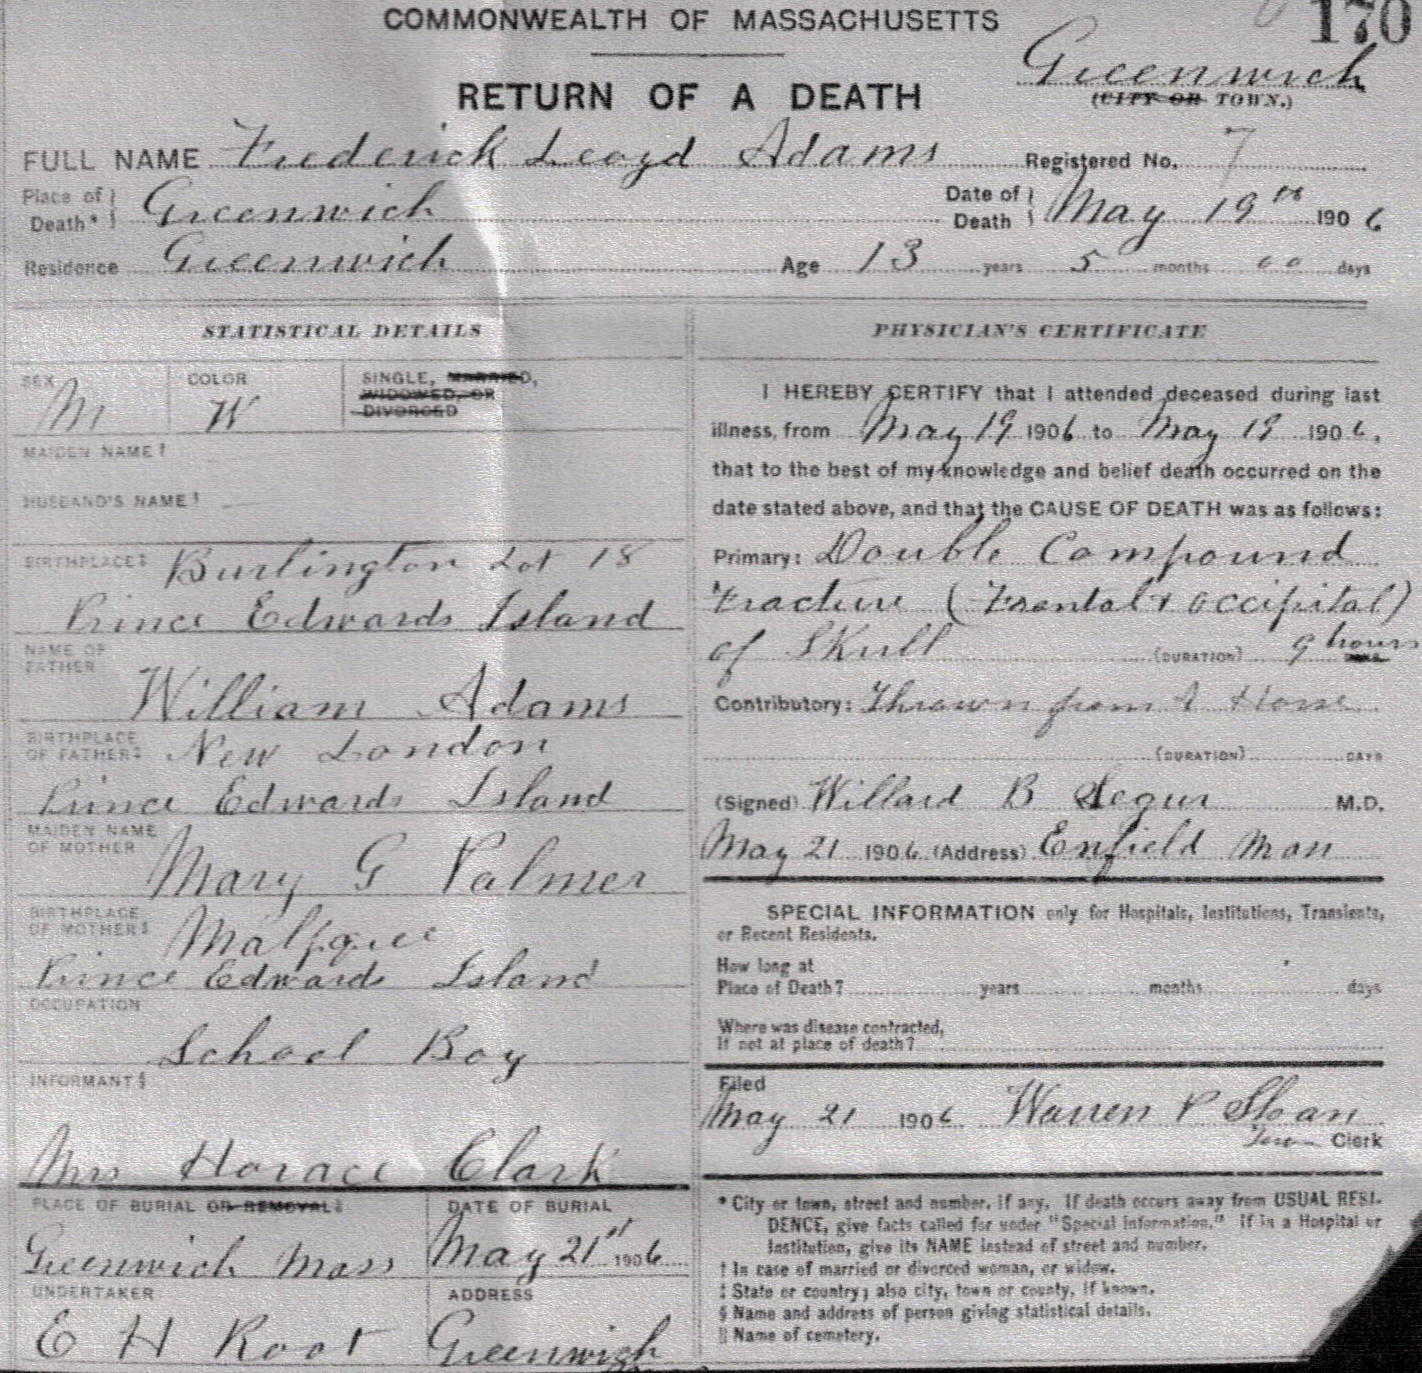 COMMONWEALTH OF MASSACHUSETTS
170
Greenwich
RETURN OF A DEATH
(CITY OR TOWN.)
FULL NAME Frederick Leoyd Adams Registered No. 7
Place of Death* Greenwich
Date of Death May 19th 1906
Residence Greenwich Age 13 years 5 months 00 days
STATISTICAL DETAILS
SEX M
COLOR W
SINGLE, MARRIED,
WIDOWED, OR
DIVORCED
MAIDEN NAME†
HUSBAND'S NAME†
BIRTHPLACE‡ Burlington Lot 18
Prince Edwards Island
NAME OF
FATHER
William Adams
BIRTHPLACE
OF FATHER‡ New London
Prince Edwards Island
MAIDEN NAME
OF MOTHER
Mary G Palmer
BIRTHPLACE
OF MOTHER‡ Malpque
Prince Edwards Island
OCCUPATION
School Boy
INFORMANT§
Mrs Horace Clark
PLACE OF BURIAL OR REMOVAL‖
Greenwich Mass
DATE OF BURIAL
May 21st 1906
UNDERTAKER
E H Root
ADDRESS
Greenwich
PHYSICIAN'S CERTIFICATE
I HEREBY CERTIFY that I attended deceased during last
illness, from May 19 1906 to May 19 1906,
that to the best of my knowledge and belief death occurred on the
date stated above, and that the CAUSE OF DEATH was as follows:
Primary: Double Compound
Fracture (Frontal + occipital)
of Skull (DURATION) 9 hours
Contributory: Thrown from A Horse
(DURATION) DAYS
(Signed) Willard B Segur M.D.
May 21 1906 (Address) Enfield Mass
SPECIAL INFORMATION only for Hospitals, Institutions, Transients,
or Recent Residents.
How long at
Place of Death? years months days
Where was disease contracted,
If not at place of death?
Filed
May 21 1906 Warren P Sloan
Town Clerk
* City or town, street and number, if any. If death occurs away from USUAL RESI-
DENCE, give facts called for under "Special Information." If in a Hospital or
Institution, give its NAME instead of street and number.
† In case of married or divorced woman, or widow.
‡ State or country; also city, town or county, if known.
§ Name and address of person giving statistical details.
‖ Name of cemetery.